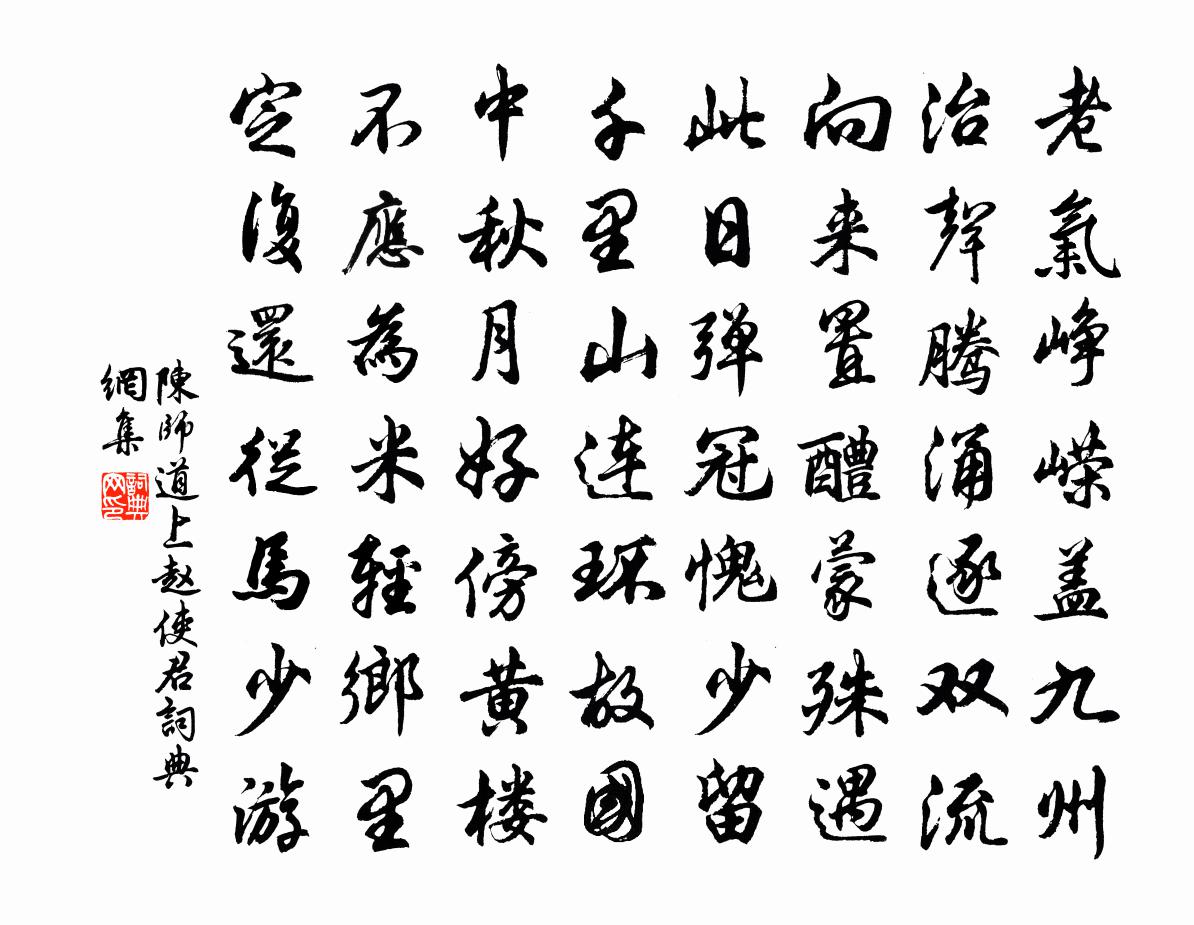 老氣峥嶸盖九州
治聲騰涌逐双流
向来置醴蒙殊遇
此日弹冠愧少留
千里山连环故國
中秋月好傍黄楼
不應為米輕鄉里
定復還從馬少游
陳師道上赵使君詞典
網集
詞典
网印